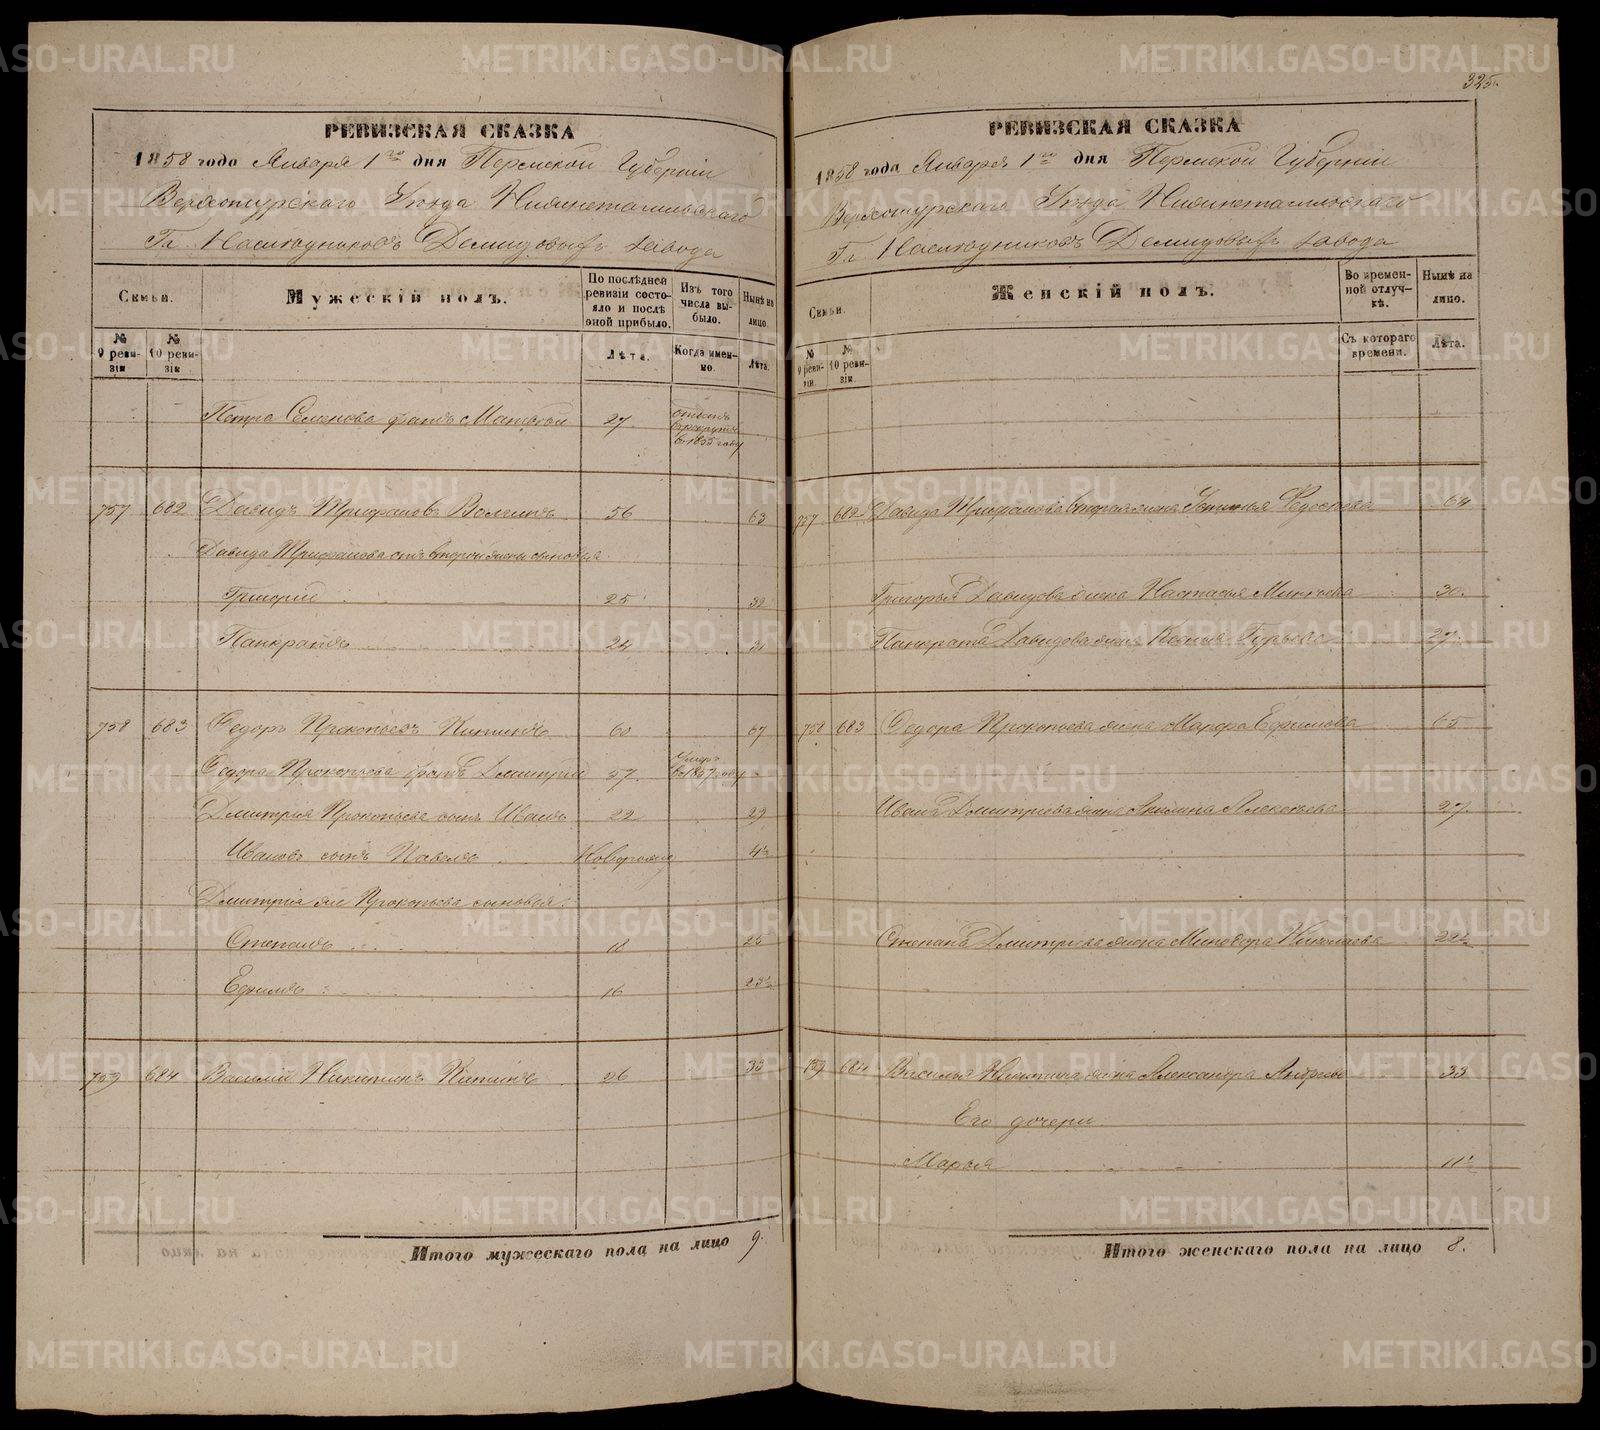 325.
РЕВИЗСКАЯ СКАЗКА
1858 года Января 1го дня Пермской Губерніи
Верхотурскаго Уѣзда Нижнетагильскаго
Гг. Наслѣдниковъ Демидовыхъ завода
Семьи.
Мужескій полъ.
По послѣдней ревизіи состояло и послѣ оной прибыло.
Изъ того числа выбыло.
Нынѣ на лицо.
№ 9 ревизіи
№ 10 ревизіи
Лѣта.
Когда именно.
Лѣта.
Петра Семенова братъ Матвей 27 отданъ в рекруты в 1855 году
757 682 Давидъ Трифановъ 56 63
Давида Трифанова отъ второй жены сыновья
Григорий 25 32
Панкратъ 24 31
758 683 Федоръ Прокопьевъ 60 67
Федора Прокопьева братъ Дмитрий 57 Умеръ в 1857 году
Дмитрия Прокопьева сынъ Иванъ 22 29
Ивановъ сынъ Павелъ Новорожд 4½
Дмитрія же Прокопьева сыновья:
Степанъ 18 25
Ефимъ 16 23½
759 684 Василій Никитинъ 26 33
Итого мужескаго пола на лицо 9.
РЕВИЗСКАЯ СКАЗКА
1858 года Января 1го дня Пермской Губерніи
Верхотурскаго Уѣзда Нижнетагильскаго
Гг. Наслѣдниковъ Демидовыхъ завода
Семьи.
Женскій полъ.
Во временной отлучкѣ.
Нынѣ на лицо.
№ 9 ревизіи.
№ 10 ревизіи.
Съ котораго времени.
Лѣта.
757 682 Давида Трифанова вторая жена Федосеева 64
Григорья Давидова жена Настасья 30.
Панкрата Давидова жена Ксенья Гурьева 27.
758 683 Федора Прокопьева жена Марфа Ефимова 65
Ивана Дмитриева жена Акилина Алексеева 27.
Степана Дмитриева жена Минодора Николаева 22½
759 684 Василья Никитина жена Александра Андреева 33
Его дочери
Марья 11½
Итого женскаго пола на лицо 8.
METRIKI.GASO-URAL.RU